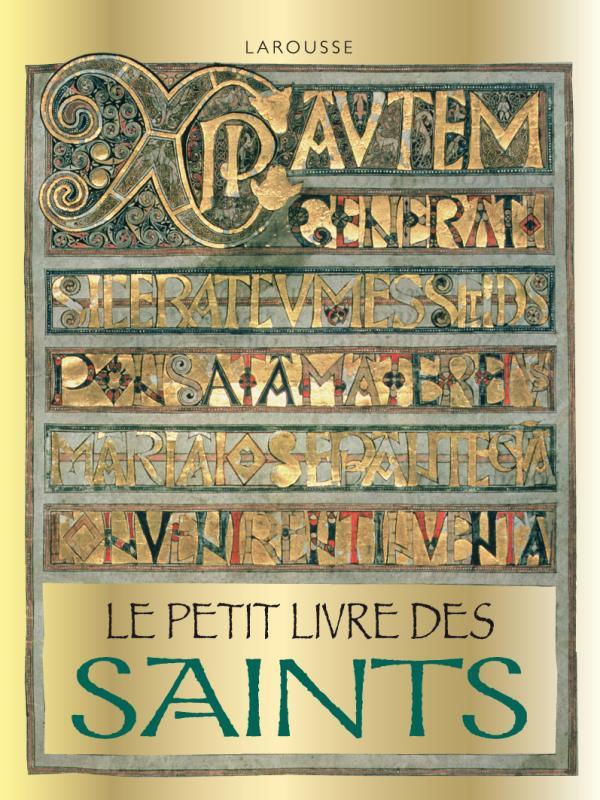 LAROUSSE
XPI AVTEM
GENERATI
SICERATCVMESSETDIS
PONSATAMATEREIVS
MARIAIOSEPANTEQVĀ
CONVENIRENTINVENTA
LE PETIT LIVRE DES
SAINTS